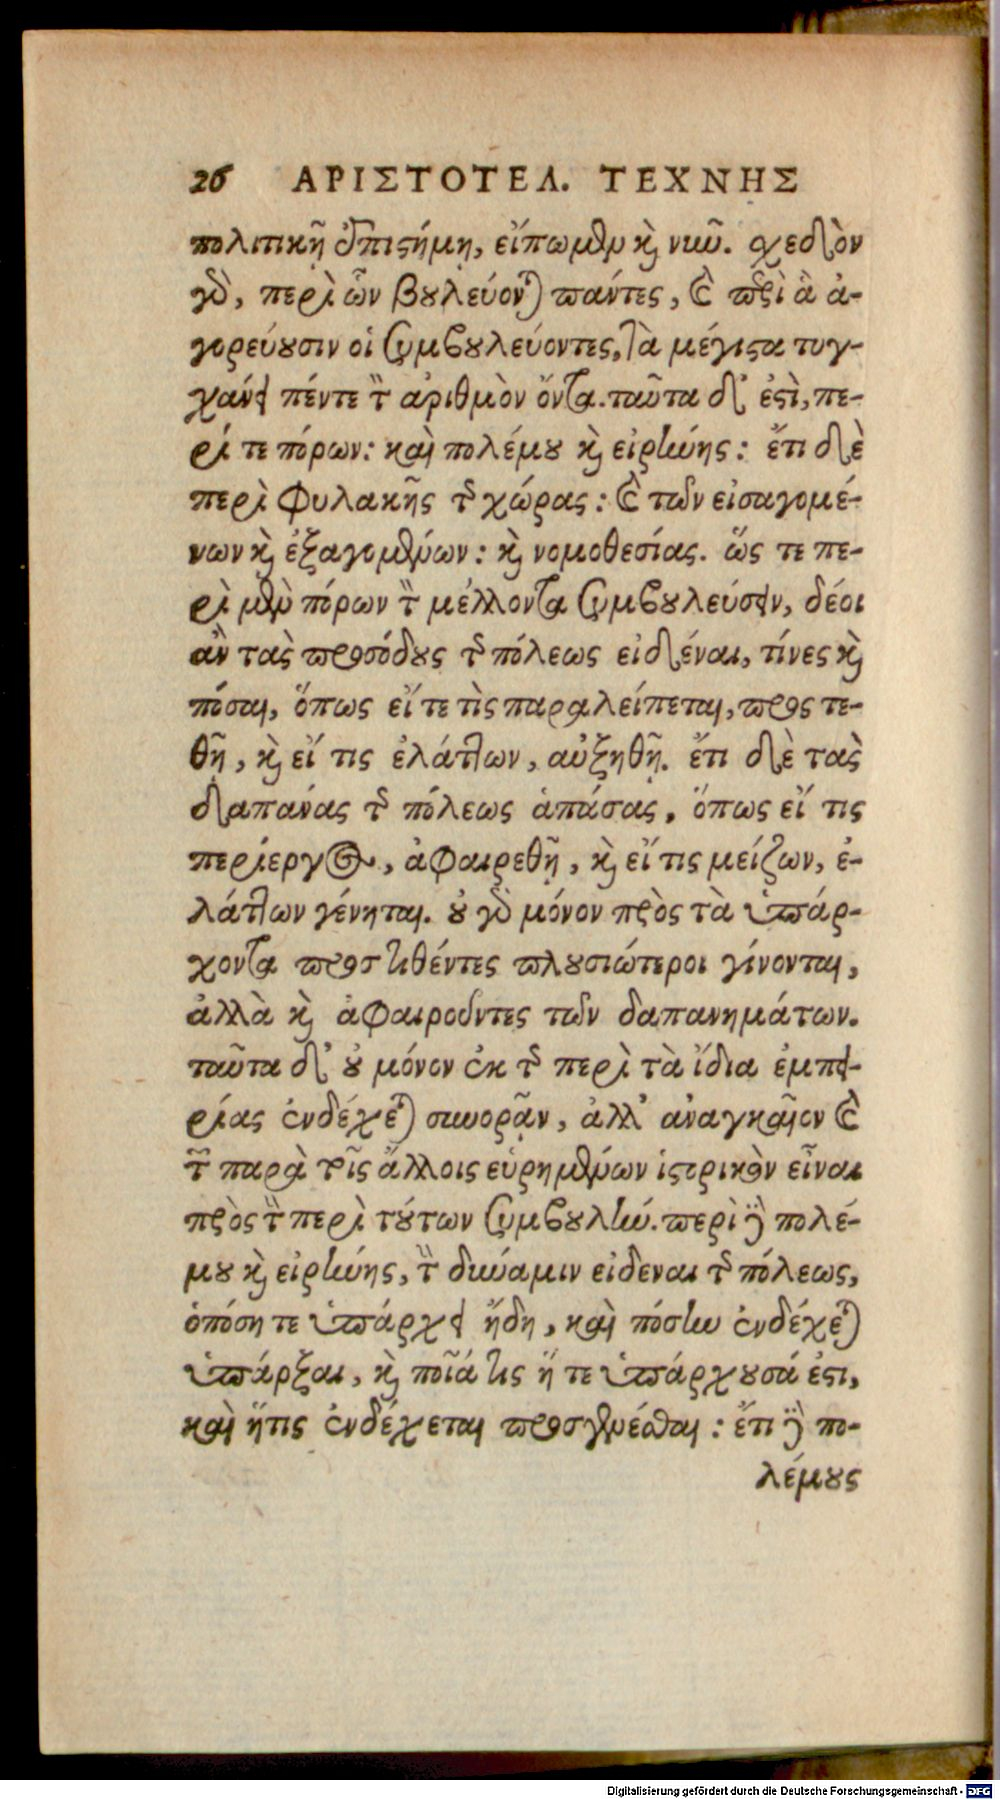 26 ΑΡΙΣΤΟΤΕΛ. ΤΕΧΝΗΣ
πολιτικῇ ἐπιστήμῃ, εἴπωμεν καὶ νῦν. σχεδὸν
γὰρ, περὶ ὧν βουλεύονται πάντες, καὶ περὶ ἃ ἀ-
γορεύουσιν οἱ συμβουλεύοντες, τὰ μέγιστα τυγ-
χάνει πέντε τὸν ἀριθμὸν ὄντα. ταῦτα δ' ἐστὶ, πε-
ρί τε πόρων: καὶ πολέμου καὶ εἰρήνης: ἔτι δὲ
περὶ φυλακῆς τῆς χώρας: καὶ τῶν εἰσαγομέ-
νων καὶ ἐξαγομένων: καὶ νομοθεσίας. ὥς τε πε-
ρὶ μὲν πόρων τὸν μέλλοντα συμβουλεύσειν, δέοι
ἂν τὰς προσόδους τῆς πόλεως εἰδέναι, τίνες καὶ
πόσαι, ὅπως εἴ τε τὶς παραλείπεται, προς τε-
θῇ, καὶ εἴ τις ἐλάττων, αὐξηθῇ. ἔτι δὲ τὰς
δαπάνας τῆς πόλεως ἁπάσας, ὅπως εἴ τις
περίεργος, ἀφαιρεθῇ, καὶ εἴ τις μείζων, ἐ-
λάττων γένηται. οὐ γὰρ μόνον πρὸς τὰ ὑπάρ-
χοντα προστιθέντες πλουσιώτεροι γίνονται,
ἀλλὰ καὶ ἀφαιροῦντες τῶν δαπανημάτων.
ταῦτα δ' οὐ μόνον ἐκ τῆς περὶ τὰ ἴδια ἐμπει-
ρίας ἐνδέχεται συνορᾷν, ἀλλ' ἀναγκαῖον καὶ
τῶν παρὰ τοῖς ἄλλοις εὑρημένων ἱστορικὸν εἶναι
πρὸς τὴν περὶ τούτων συμβουλήν. περὶ δὲ πολέ-
μου καὶ εἰρήνης, τὴν δύναμιν εἰδεναι τῆς πόλεως,
ὁπόση τε ὑπάρχει ἤδη, καὶ πόσην ἐνδέχεται
ὑπάρξαι, καὶ ποῖά τις ἥ τε ὑπάρχουσά ἐστι,
καὶ ἥτις ἐνδέχεται προσγενέσθαι: ἔτι δὲ πο-
λέμους
Digitalisierung gefördert durch die Deutsche Forschungsgemeinschaft - DFG